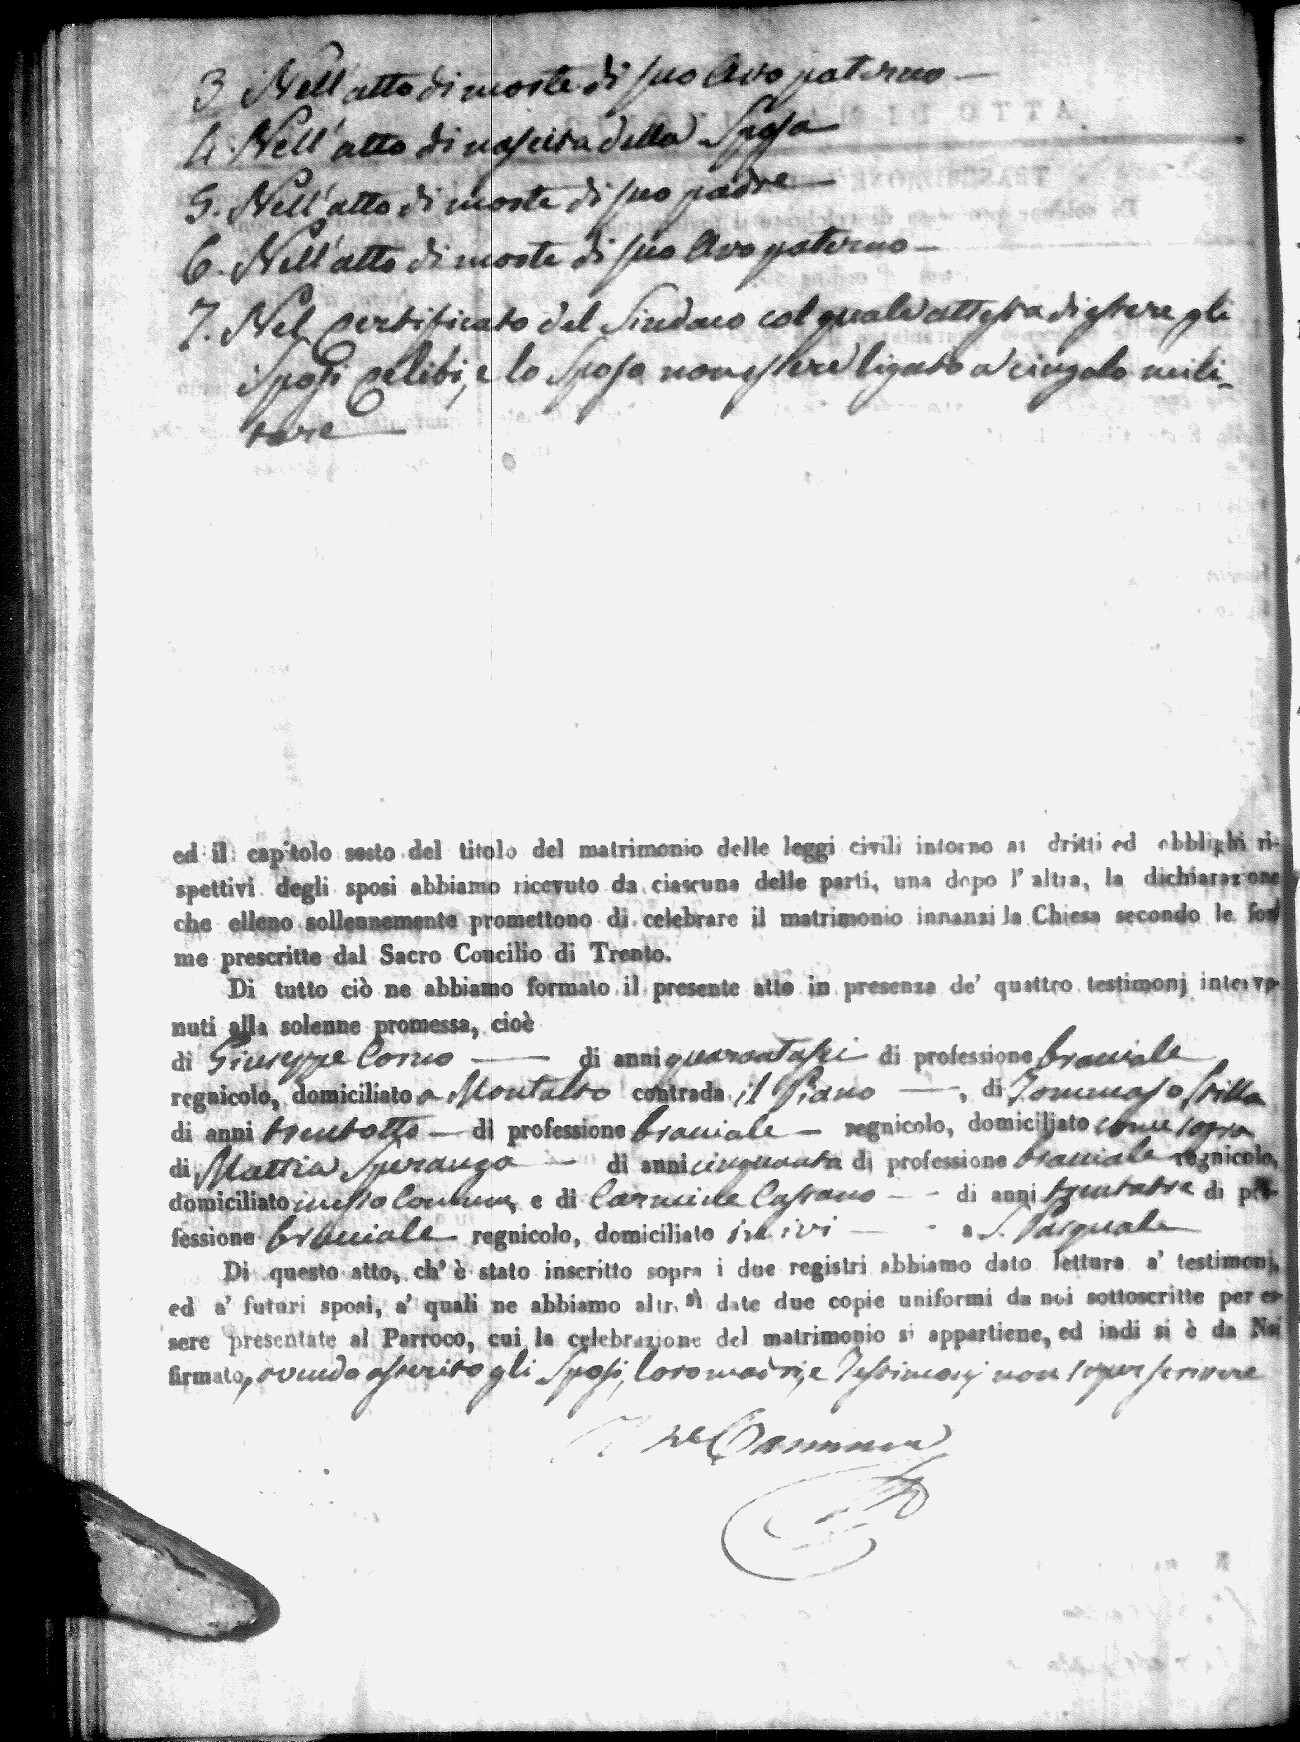 3. Nell'atto di morte di suo Avo paterno —
4. Nell'atto di nascita della Sposa
5. Nell'atto di morte di suo padre —
6. Nell'atto di morte di suo Avo paterno —
7. Nel Certificato del Sindaco col quale attesta d'essere gli
Sposi Celibi, e lo Sposo non essere ligato a cingolo mili-
tare —
ed il capitolo sesto del titolo del matrimonio delle leggi civili intorno ai dritti ed obblighi ri-
spettivi degli sposi abbiamo ricevuto da ciascuna delle parti, una dopo l'altra, la dichiarazione
che elleno sollennemente promettono di celebrare il matrimonio innanzi la Chiesa secondo le for-
me prescritte dal Sacro Concilio di Trento.
Di tutto ciò ne abbiamo formato il presente atto in presenza de' quattro testimonj interve-
nuti alla solenne promessa, cioè
di Giuseppe Corno — di anni quarantasei di professione braciale
regnicolo, domiciliato a Montalto contrada il Piano —, di Tommaso Stilla
di anni trentotto — di professione braciale — regnicolo, domiciliato come sopra
di Mattia Speranza — di anni cinquanta di professione braciale regnicolo,
domiciliato in esso Comune, e di Carmine Cassano — di anni trentatre di pro-
fessione braciale regnicolo, domiciliato ivi — a S. Pasquale
Di questo atto, ch' è stato inscritto sopra i due registri abbiamo dato lettura a' testimonj,
ed a' futuri sposi, a' quali ne abbiamo altresì date due copie uniformi da noi sottoscritte per es-
sere presentate al Parroco, cui la celebrazione del matrimonio si appartiene, ed indi si è da Noi
firmato, avendo asserito gli Sposi, loro madri, e Testimonj non saper scrivere